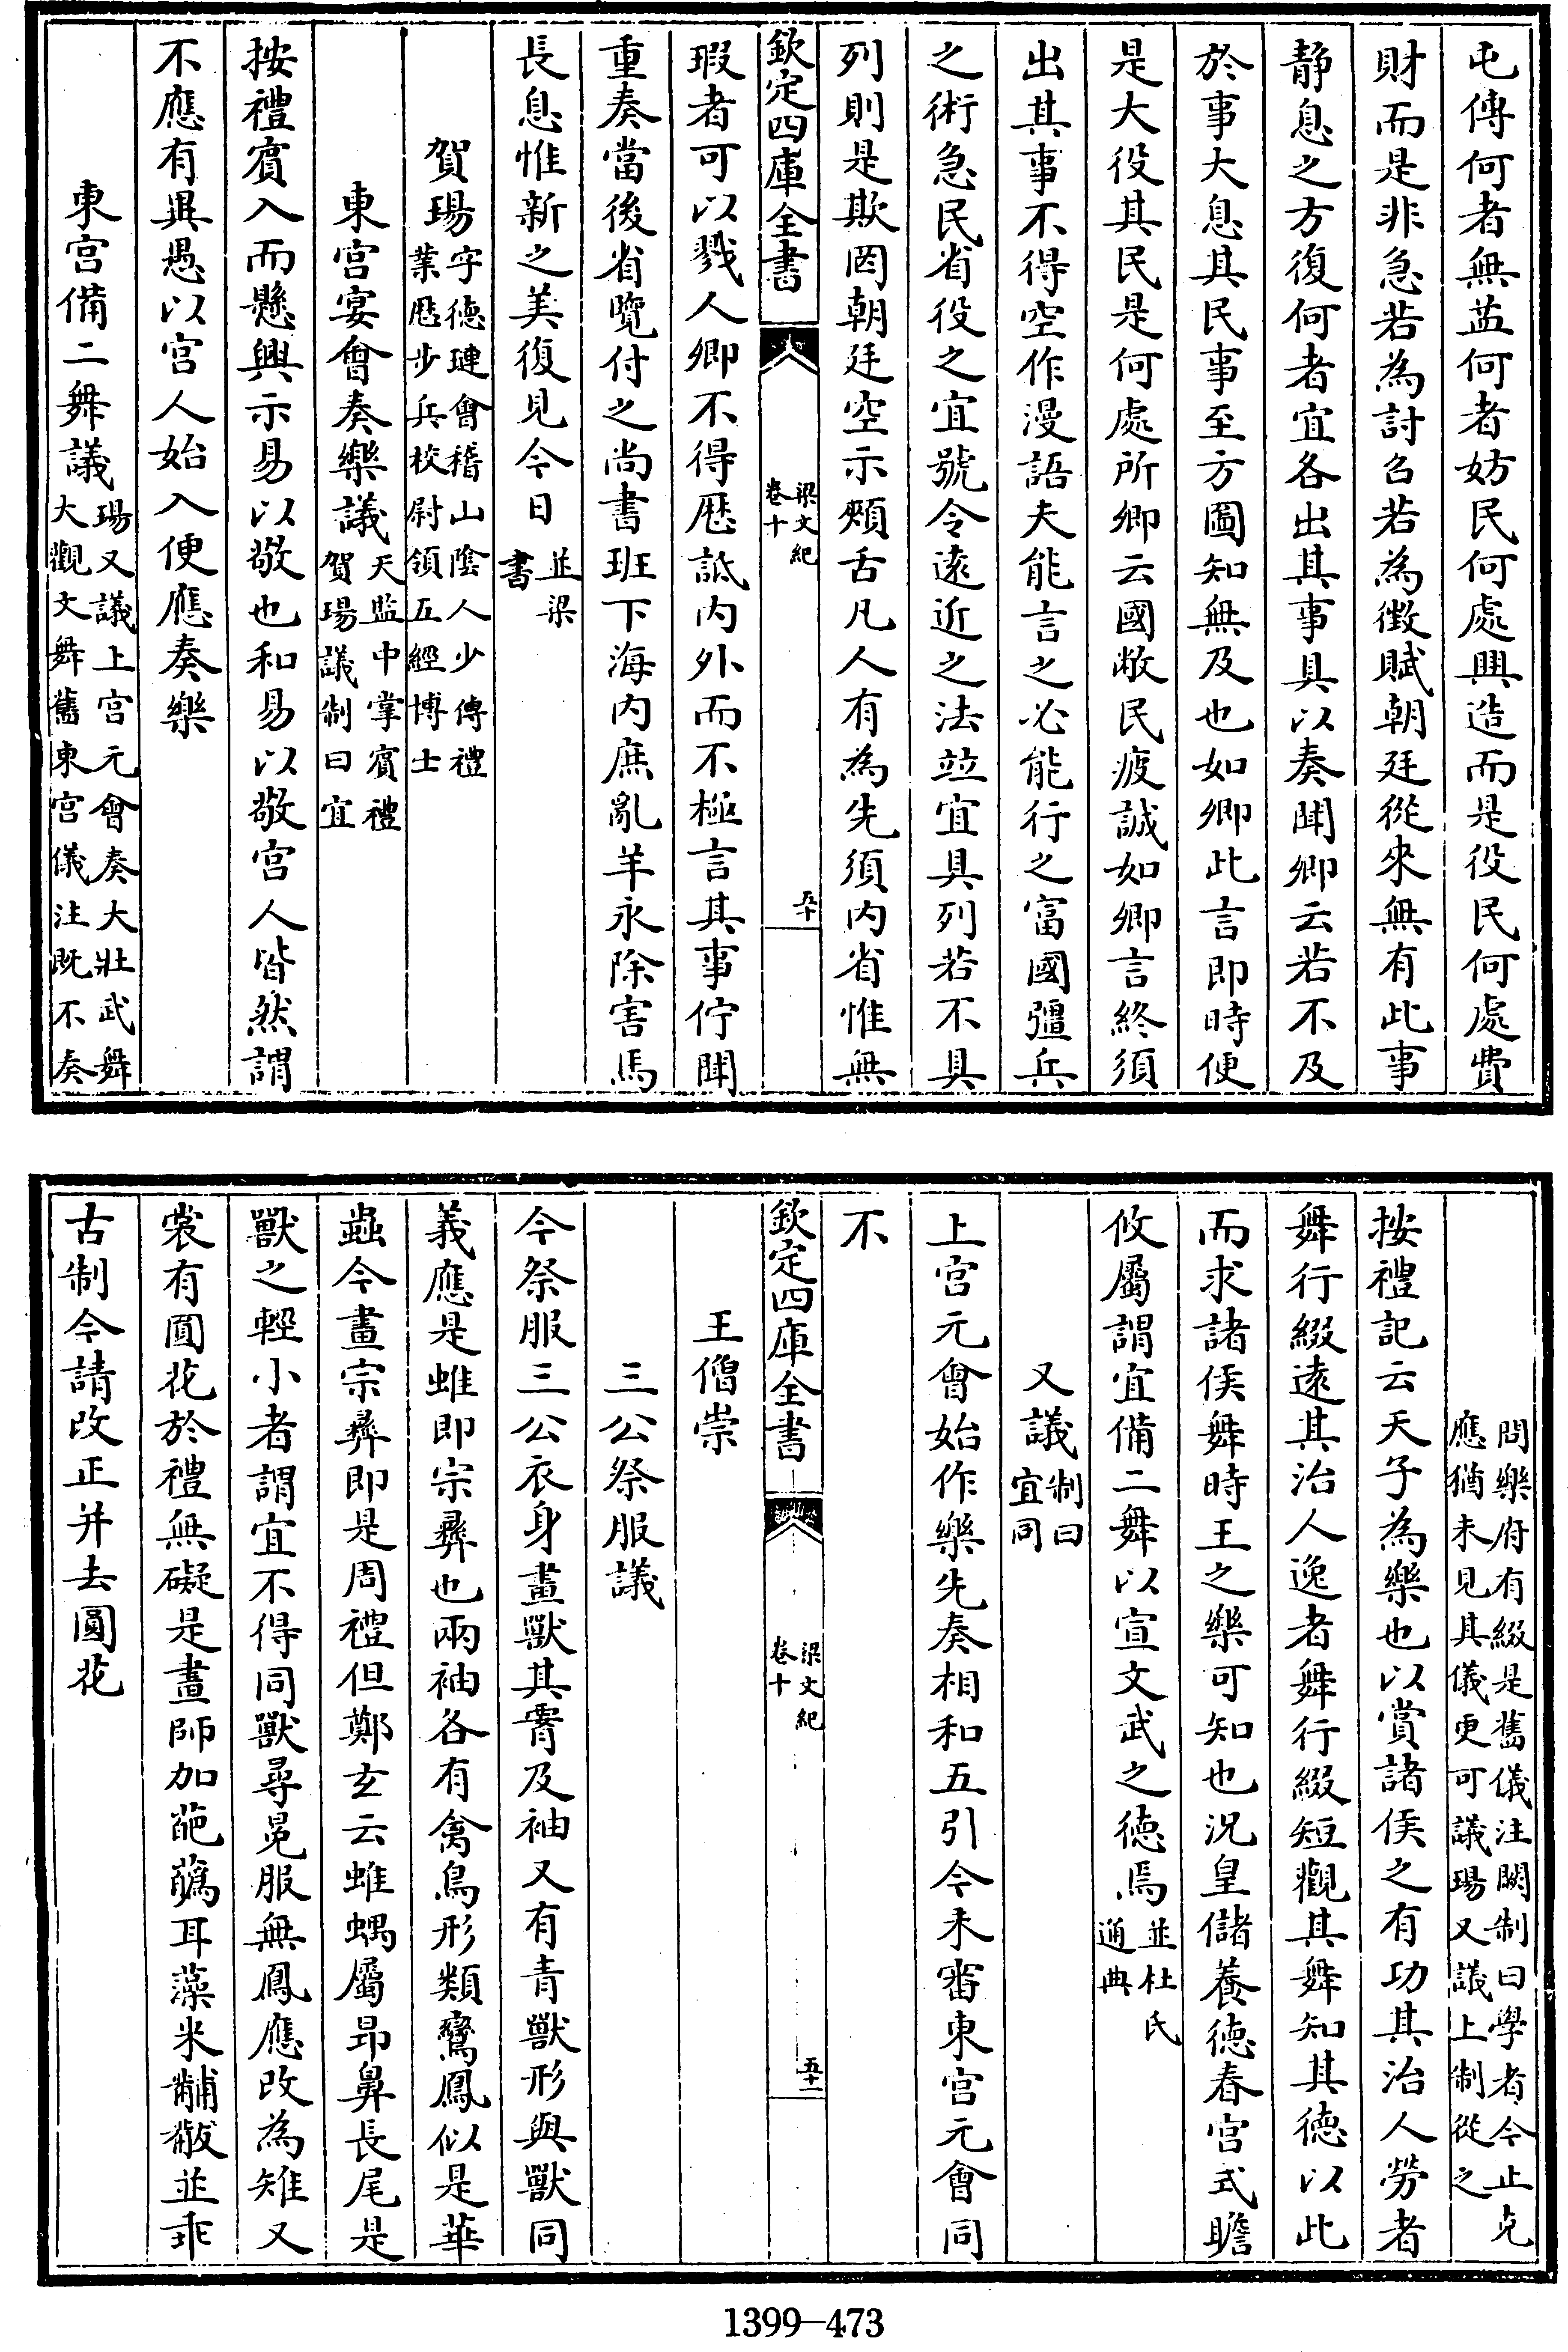 屯傳何者無益何者妨民何處興造而是役民何處費
財而是非急若為討召若為徵賦朝廷從來無有此事
靜息之方復何者宜各出其事具以奏聞卿云若不及
於事大息其民事至方圖知無及也如卿此言即時便
是大役其民是何處所卿云國敝民疲誠如卿言終須
出其事不得空作漫語夫能言之必能行之富國彊兵
之術急民省役之宜號令遠近之法竝宜具列若不具
列則是欺罔朝廷空示頰舌凡人有為先須內省惟無
欽定四庫全書
梁文紀
卷十
五十
瑕者可以戮人卿不得歷詆內外而不極言其事佇聞
重奏當後省覽付之尚書班下海內庶亂羊永除害馬
長息惟新之美復見今日
並梁
書
賀瑒
字德璉會稽山陰人少傳禮
業歷步兵校尉領五經博士
東宮宴會奏樂議
天監中掌賓禮
賀瑒議制曰宜
按禮賓入而懸興示易以敬也和易以敬宮人皆然謂
不應有異愚以宮人始入便應奏樂
東宮備二舞議
瑒又議上宮元會奏大壯武舞
大觀文舞舊東宮儀注既不奏
問樂府有綴是舊儀注闕制曰學者今止克
應猶未見其儀更可議瑒又議上制從之
按禮記云天子為樂也以賞諸侯之有功其治人勞者
舞行綴遠其治人逸者舞行綴短觀其舞知其德以此
而求諸侯舞時王之樂可知也況皇儲養德春宮式瞻
攸屬謂宜備二舞以宣文武之德焉
並杜氏
通典
又議
制曰
宜同
上宮元會始作樂先奏相和五引今未審東宮元會同
不
欽定四庫全書
梁文紀
卷十
五十一
王僧崇
三公祭服議
今祭服三公衣身畫獸其䘸及袖又有青獸形與獸同
義應是蜼即宗彛也兩袖各有禽鳥形類鸞鳳似是華
蟲今畫宗彛即是周禮但鄭玄云蜼蝺屬昂鼻長尾是
獸之輕小者謂宜不得同獸尋冕服無鳳應改為雉又
裳有圓花於禮無礙是畫師加葩蘤耳藻米黼黻並乖
古制今請改正并去圓花
1399—473